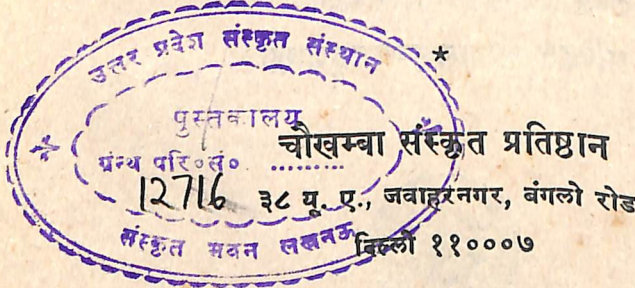 उत्तर प्रदेश संस्कृत संस्थान
*
पुस्तकालय
ग्रन्थ परि०सं० .........
12716
संस्कृत भवन लखनऊ
चौखम्बा संस्कृत प्रतिष्ठान
३८ यू. ए., जवाहरनगर, बंगलो रोड
दिल्ली ११०००७